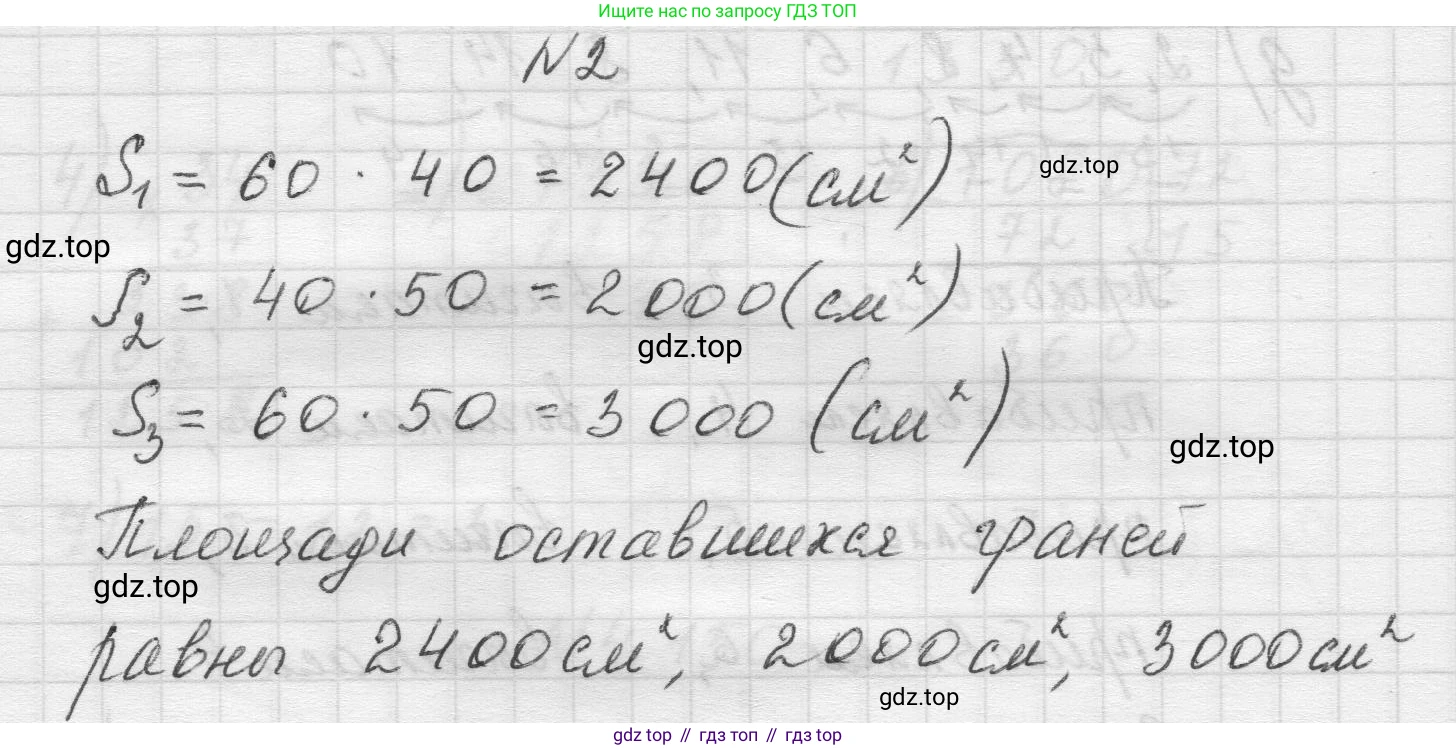 Ищите нас по запросу ГДЗ ТОП
N2
S₁ = 60 · 40 = 2400 (см²)
gdz.top
gdz.top
S₂ = 40 · 50 = 2000 (см²)
gdz.top
S₃ = 60 · 50 = 3000 (см²)
gdz.top
Площади оставшихся граней
gdz.top
равны 2400 см², 2000 см², 3000 см²
gdz.top
gdz.top // гдз топ // гдз.top